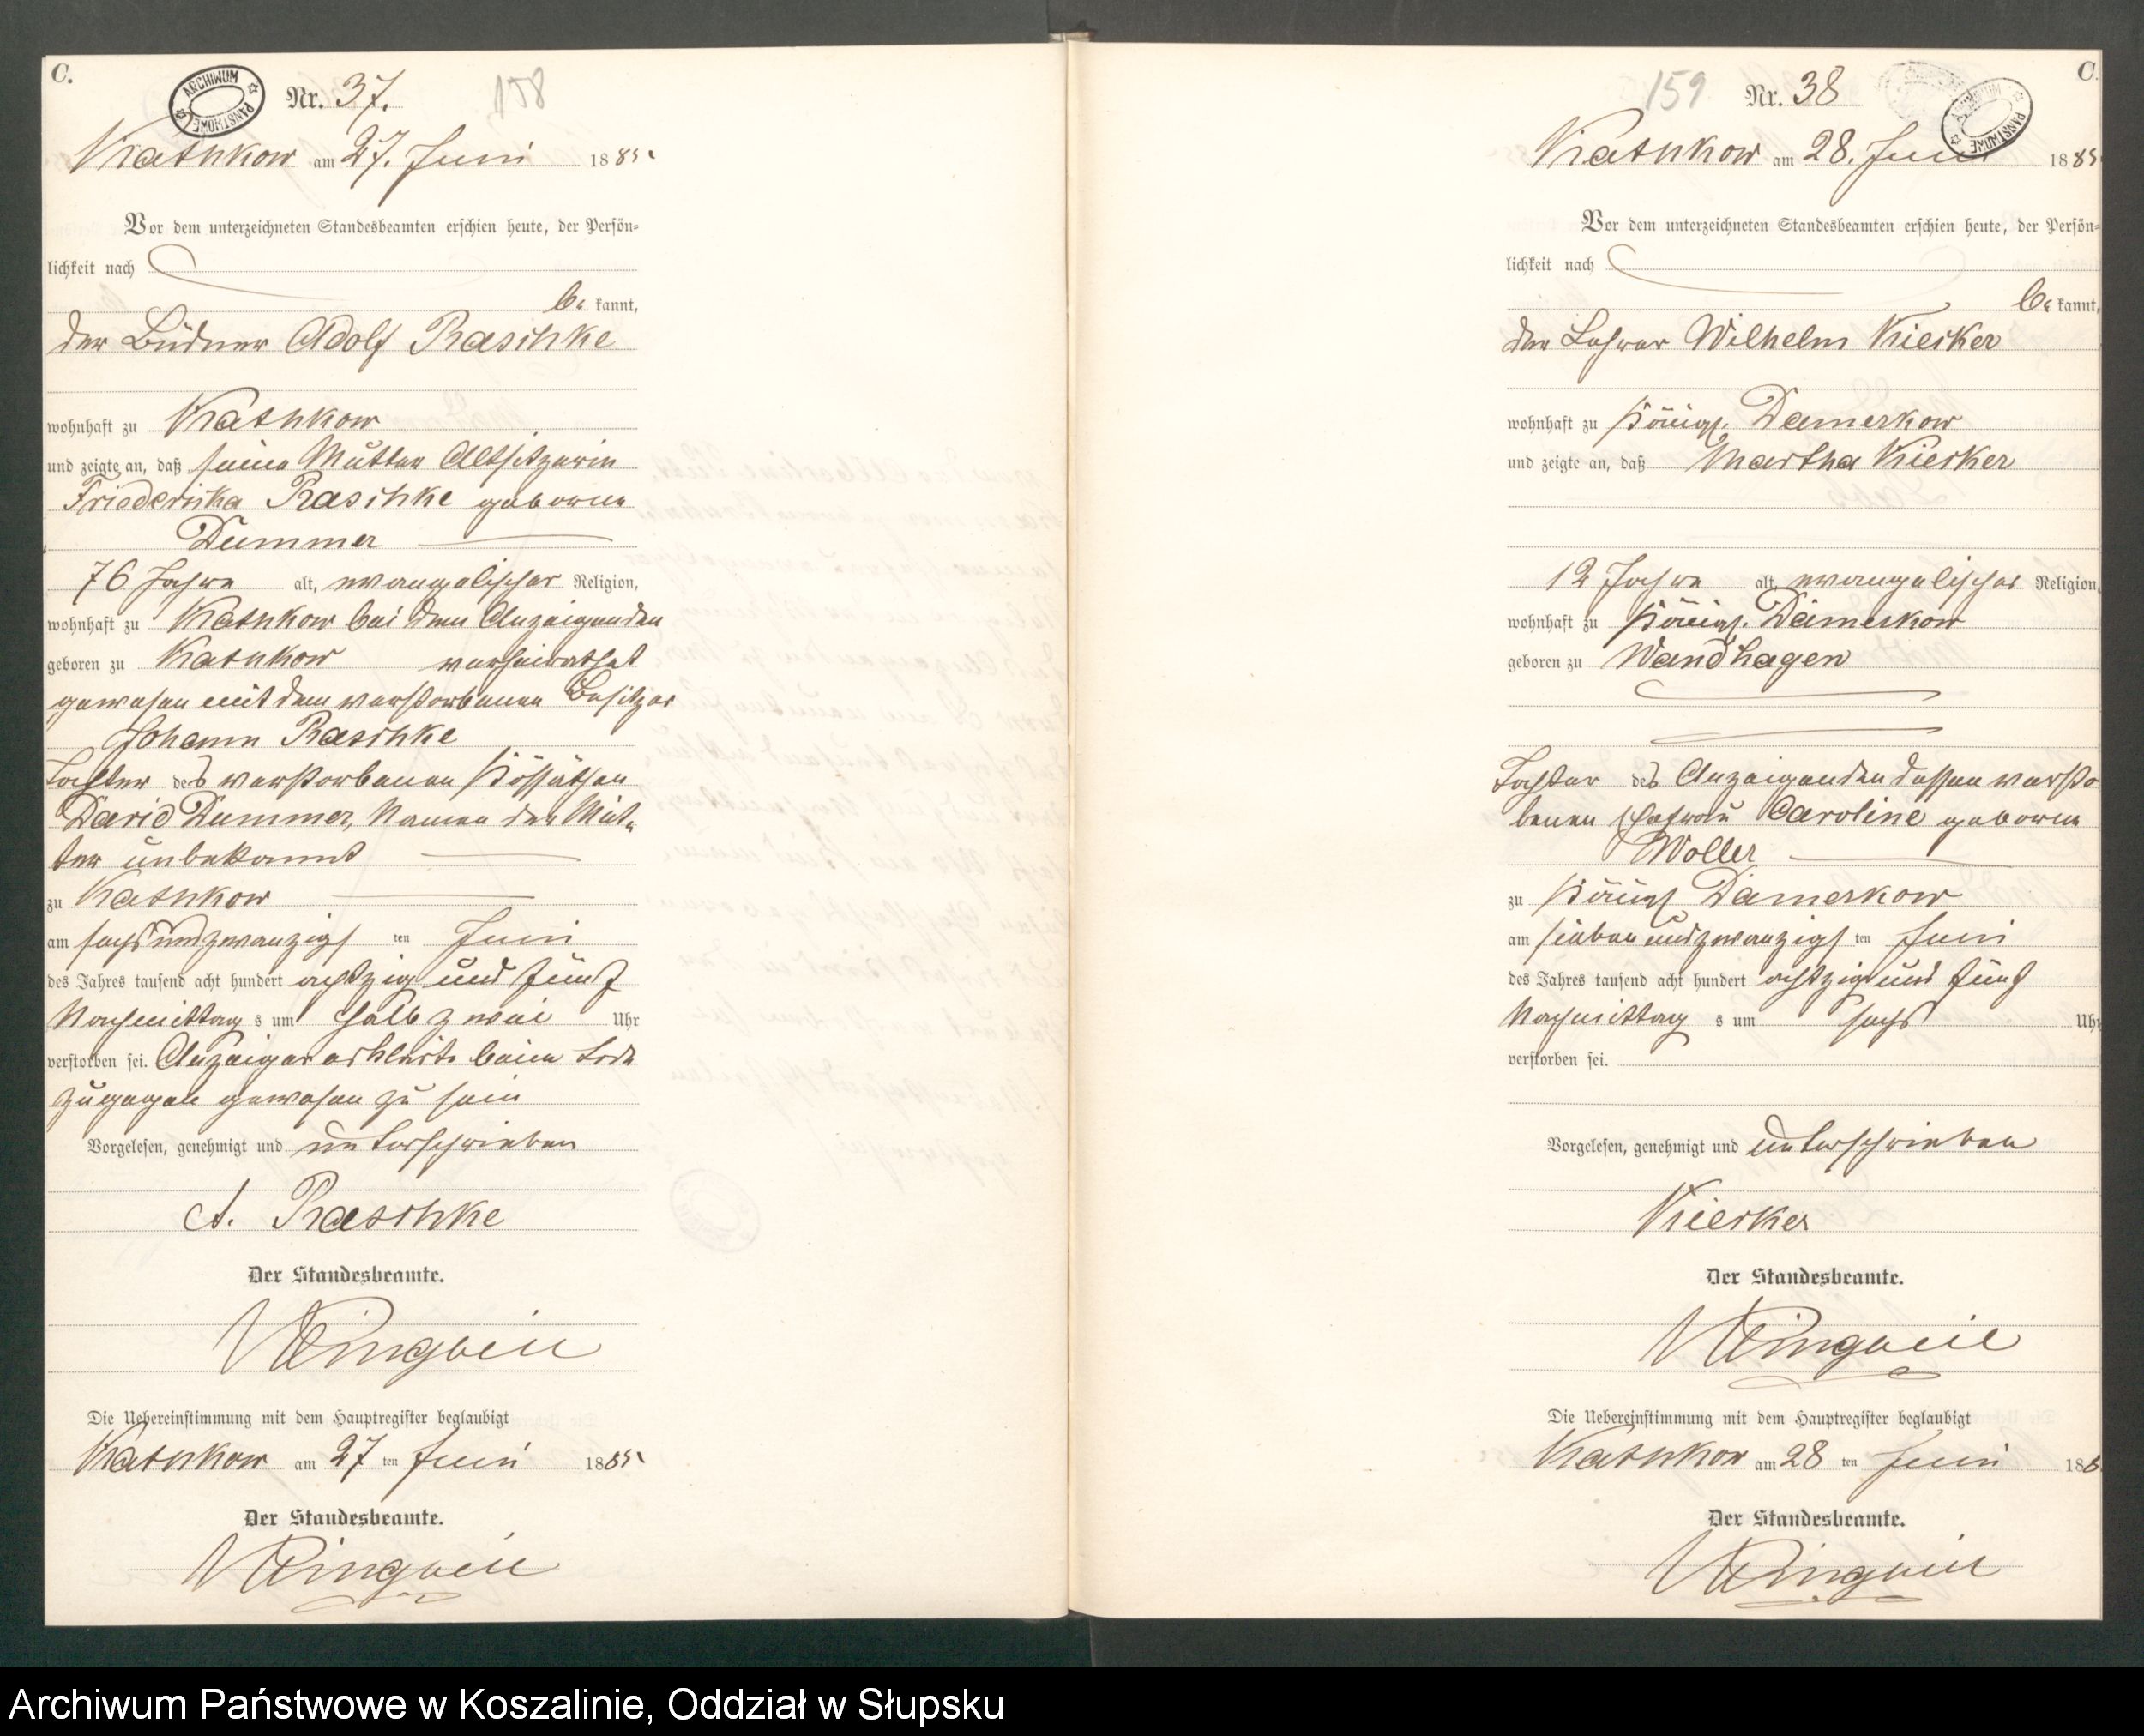 C.
ARCHIWUM PAŃSTWOWE
Nr. 37.
158
Kathkow am 27. Juni 1885.
Vor dem unterzeichneten Standesbeamten erschien heute, der Persön-
lichkeit nach
be kannt,
der Büdner Adolf Raschke
wohnhaft zu Kathkow
und zeigte an, daß seine Mutter Altsitzerin
Friedericka Raschke geborne
Dummer
76 Jahre alt, evangelischer Religion,
wohnhaft zu Kathkow bei dem Anzeigenden
geboren zu Kathkow verheirathet
gewesen mit dem verstorbenen Besitzer
Johann Raschke
Tochter des verstorbenen Kossäthen
David Dummer, Namen der Mut-
ter unbekannt
zu Kathkow
am sechsundzwanzigsten Juni
des Jahres tausend acht hundert achtzig und fünf
Nachmittags um halb zwei Uhr
verstorben sei. Anzeiger erklärte beim Tode
zugegen gewesen zu sein
Vorgelesen, genehmigt und unterschrieben
A. Raschke
Der Standesbeamte.
Die Uebereinstimmung mit dem Hauptregister beglaubigt
Kathkow am 27 ten Juni 1885.
Der Standesbeamte.
C.
ARCHIWUM PAŃSTWOWE
159
Nr. 38
Kathkow am 28. Juni 1885
Vor dem unterzeichneten Standesbeamten erschien heute, der Persön-
lichkeit nach
be kannt,
der Lehrer Wilhelm Kiesker
wohnhaft zu Königl. Damerkow
und zeigte an, daß Martha Kiesker
12 Jahre alt, evangelischer Religion,
wohnhaft zu Königl. Damerkow
geboren zu Wandhagen
Tochter des Anzeigenden dessen verstor
benen Ehefrau Caroline geborne
Woller
zu Königl Damerkow
am siebenundzwanzigsten Juni
des Jahres tausend acht hundert achtzig und fünf
Nachmittags um sechs Uhr
verstorben sei.
Vorgelesen, genehmigt und unterschrieben
Kiesker
Der Standesbeamte.
Die Uebereinstimmung mit dem Hauptregister beglaubigt
Kathkow am 28 ten Juni 188
Der Standesbeamte.
Archiwum Państwowe w Koszalinie, Oddział w Słupsku